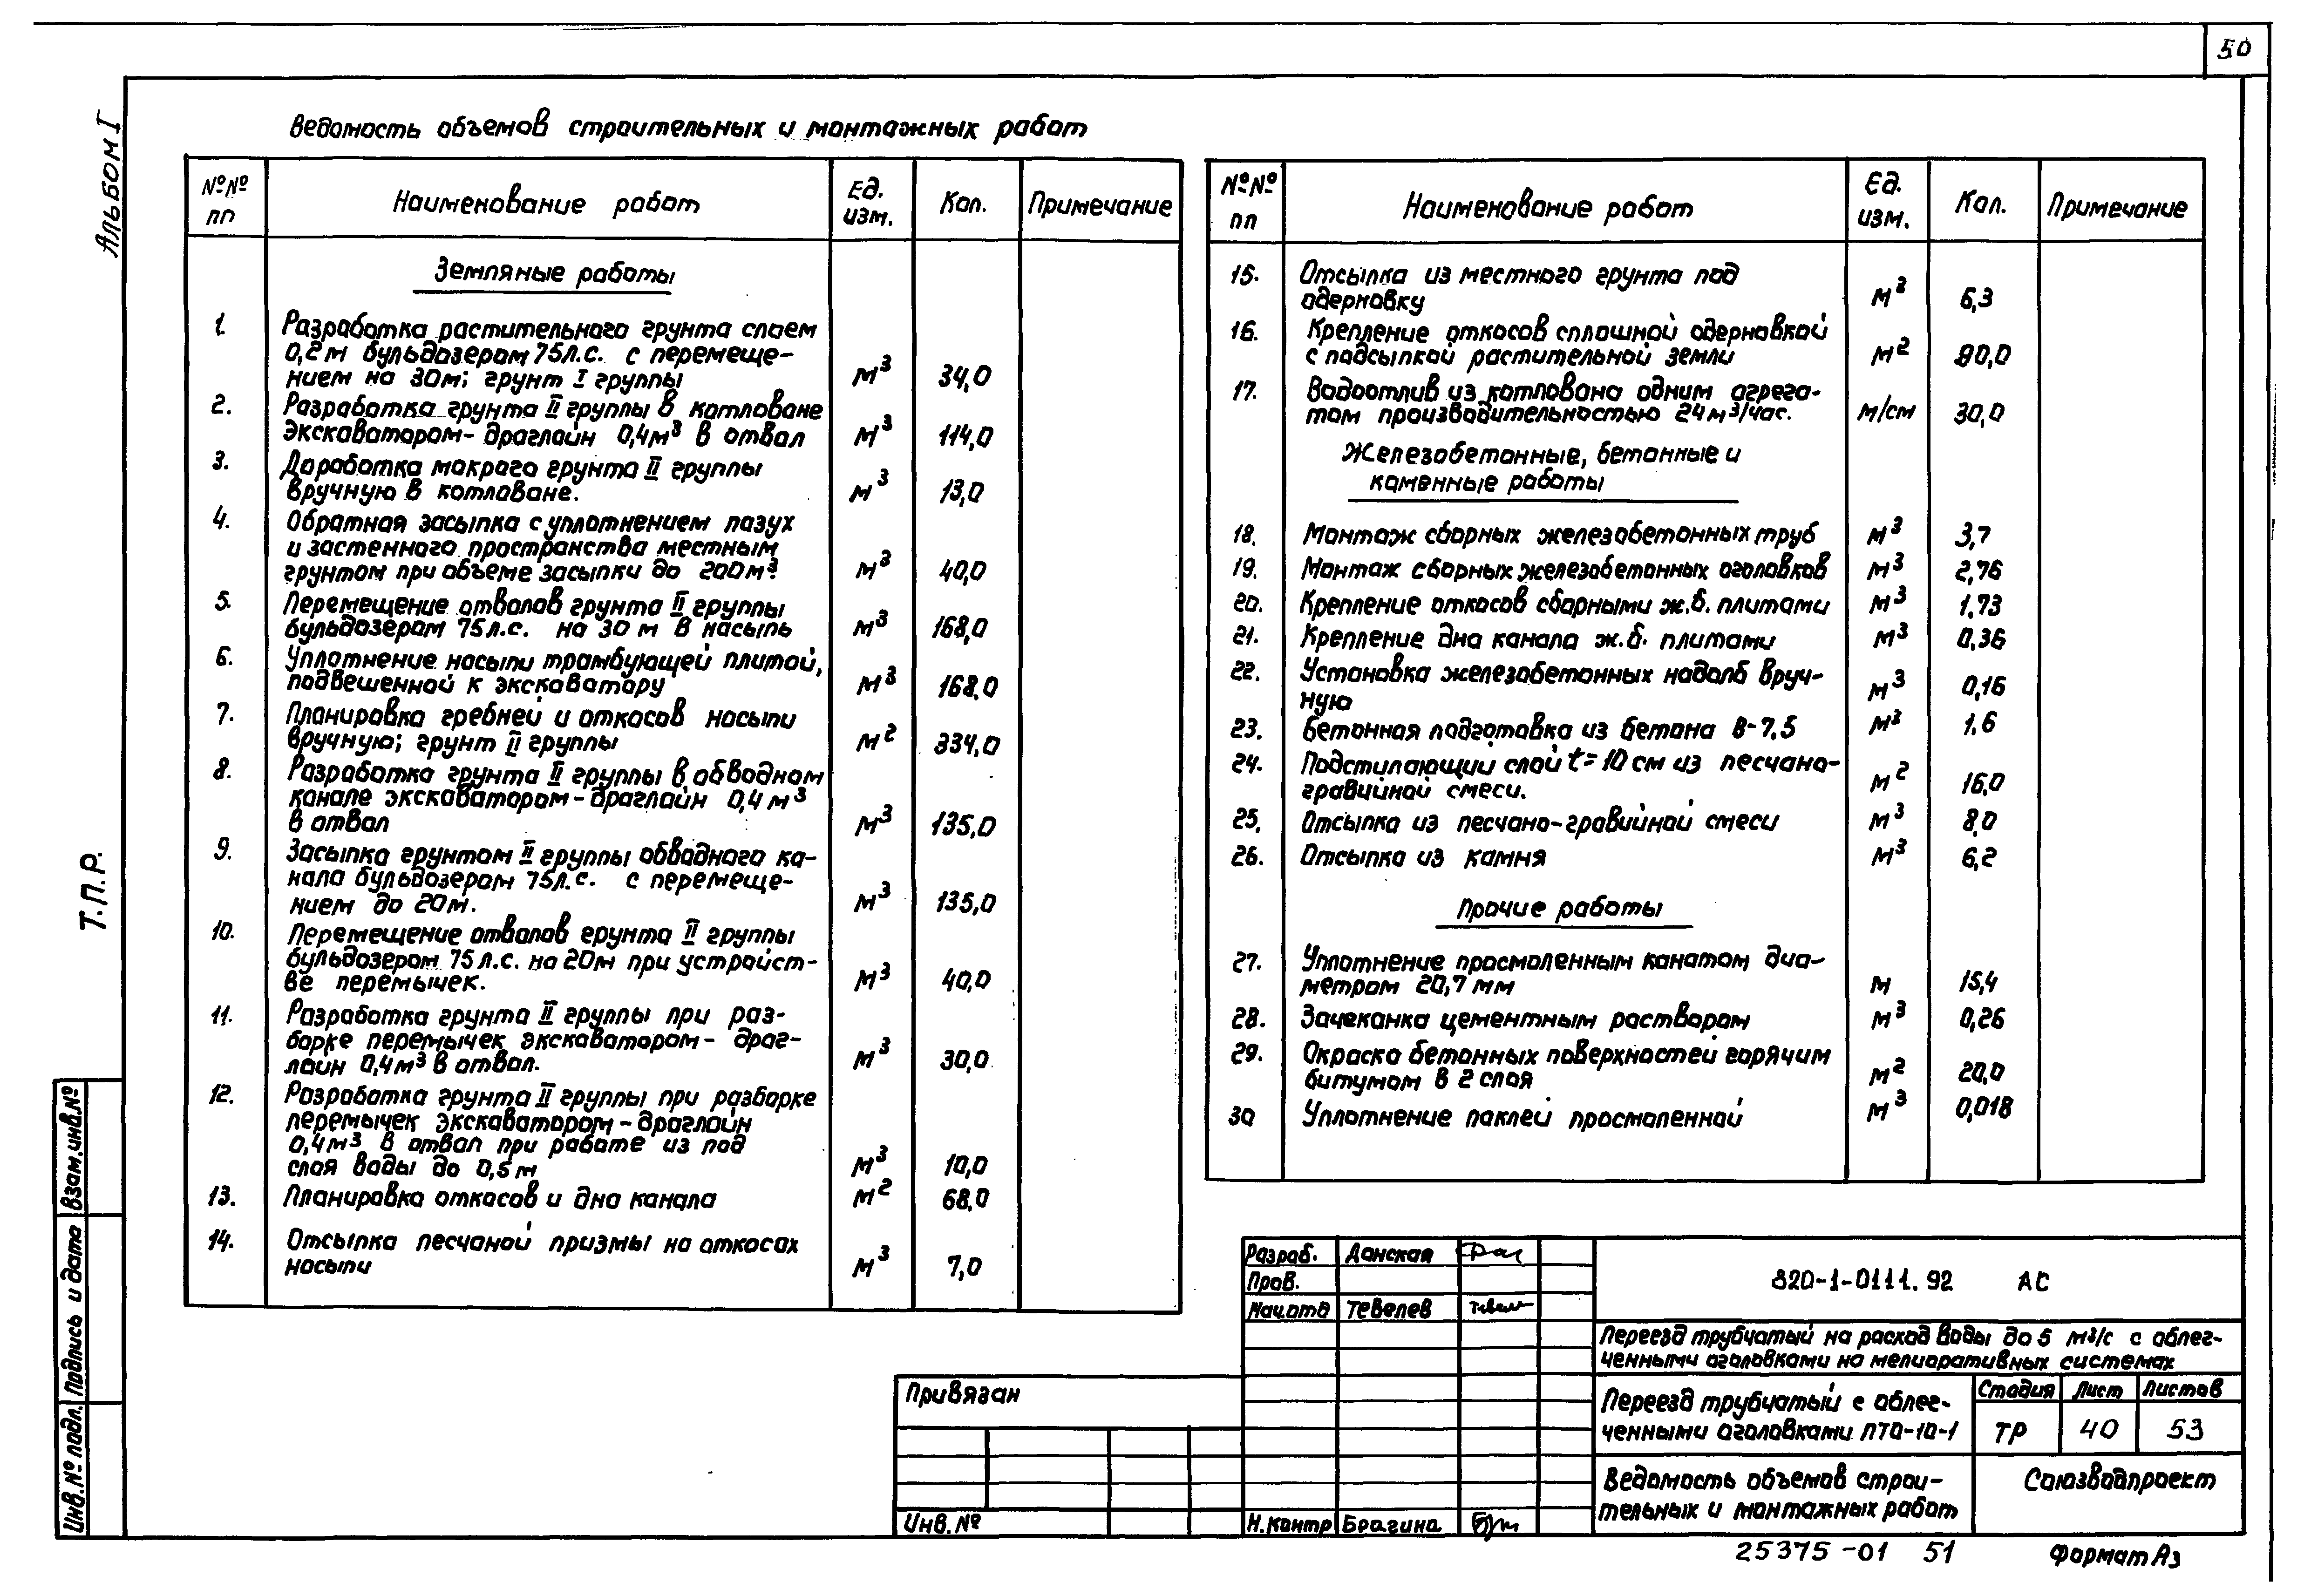 50
Альбом I
Т.П.Р.
Ведомость объемов строительных и монтажных работ
№№ пп
Наименование работ
Ед. изм.
Кол.
Примечание
Земляные работы
1. Разработка растительного грунта слоем
0,2м бульдозером 75л.с. с перемеще-
нием на 30м; грунт I группы м³ 34,0
2. Разработка грунта II группы в котловане
экскаватором-драглайн 0,4м³ в отвал м³ 114,0
3. Доработка мокрого грунта II группы
вручную в котловане. м³ 13,0
4. Обратная засыпка с уплотнением пазух
и застенного пространства местным
грунтом при объеме засыпки до 200м³ м³ 40,0
5. Перемещение отвалов грунта II группы
бульдозером 75л.с. на 30м в насыпь м³ 168,0
6. Уплотнение насыпи трамбующей плитой,
подвешенной к экскаватору м³ 168,0
7. Планировка гребней и откосов насыпи
вручную; грунт II группы м² 334,0
8. Разработка грунта II группы в обводном
канале экскаватором-драглайн 0,4м³
в отвал м³ 135,0
9. Засыпка грунтом II группы обводного ка-
нала бульдозером 75л.с. с перемеще-
нием до 20м. м³ 135,0
10. Перемещение отвалов грунта II группы
бульдозером 75л.с. на 20м при устройст-
ве перемычек. м³ 40,0
11. Разработка грунта II группы при раз-
борке перемычек экскаватором-драг-
лайн 0,4м³ в отвал. м³ 30,0
12. Разработка грунта II группы при разборке
перемычек экскаватором-драглайн
0,4м³ в отвал при работе из под
слоя воды до 0,5м м³ 10,0
13. Планировка откосов и дна канала м² 68,0
14. Отсыпка песчаной призмы на откосах
насыпи м³ 7,0
№№ пп
Наименование работ
Ед. изм.
Кол.
Примечание
15. Отсыпка из местного грунта под
одерновку м³ 6,3
16. Крепление откосов сплошной одерновкой
с подсыпкой растительной земли м² 90,0
17. Водоотлив из котлована одним агрега-
том производительностью 24м³/час. м/см 30,0
Железобетонные, бетонные и
каменные работы
18. Монтаж сборных железобетонных труб м³ 3,7
19. Монтаж сборных железобетонных оголовков м³ 2,76
20. Крепление откосов сборными ж.б. плитами м³ 1,73
21. Крепление дна канала ж.б. плитами м³ 0,36
22. Установка железобетонных надолб вруч-
ную м³ 0,16
23. Бетонная подготовка из бетона В-7,5 м³ 1,6
24. Подстилающий слой t=10см из песчано-
гравийной смеси. м² 16,0
25. Отсыпка из песчано-гравийной смеси м³ 8,0
26. Отсыпка из камня м³ 6,2
Прочие работы
27. Уплотнение просмоленным канатом диа-
метром 20,7мм м 15,4
28. Зачеканка цементным раствором м³ 0,26
29. Окраска бетонных поверхностей горячим
битумом в 2 слоя м² 20,0
30 Уплотнение паклей просмоленной м³ 0,018
Взам.инв.№
Подпись и дата
Инв.№ подл.
Привязан
Инв.№
Разраб. Донская
Пров.
Нач.отд Тевелев
Н.контр Брагина
820-1-0111.92 АС
Переезд трубчатый на расход воды до 5 м³/с с облег-
ченными оголовками на мелиоративных системах
Переезд трубчатый с облег-
ченными оголовками ПТО-10-1
Стадия Лист Листов
ТР 40 53
Ведомость объемов строи-
тельных и монтажных работ
Союзводпроект
25375-01 51
Формат А3